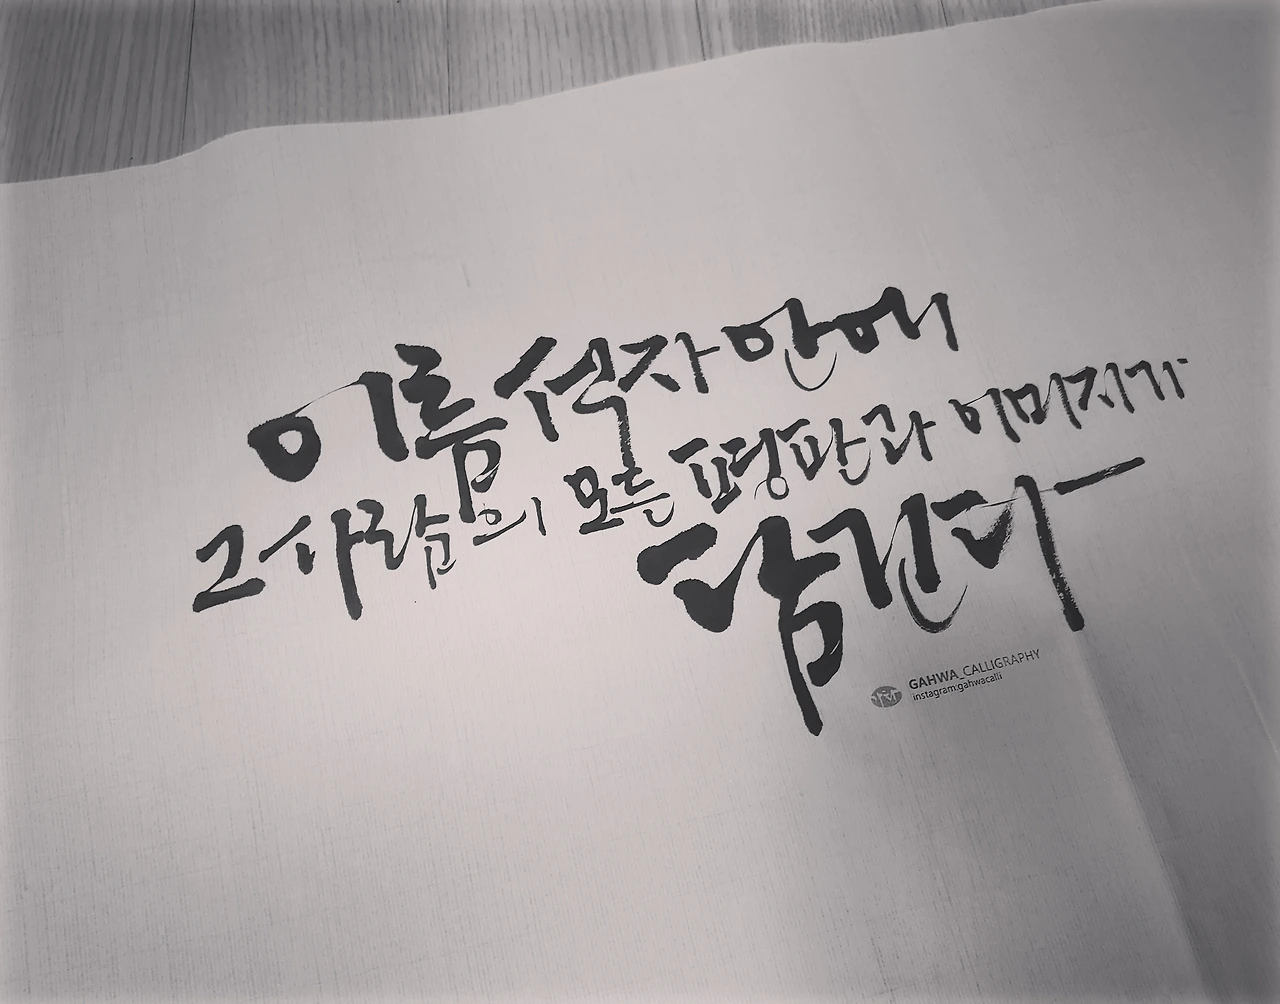 이름 석자 안에
그 사람의 모든 평판과 이미지가
담긴다
GAHWA_CALLIGRAPHY
instagram:gahwacalli